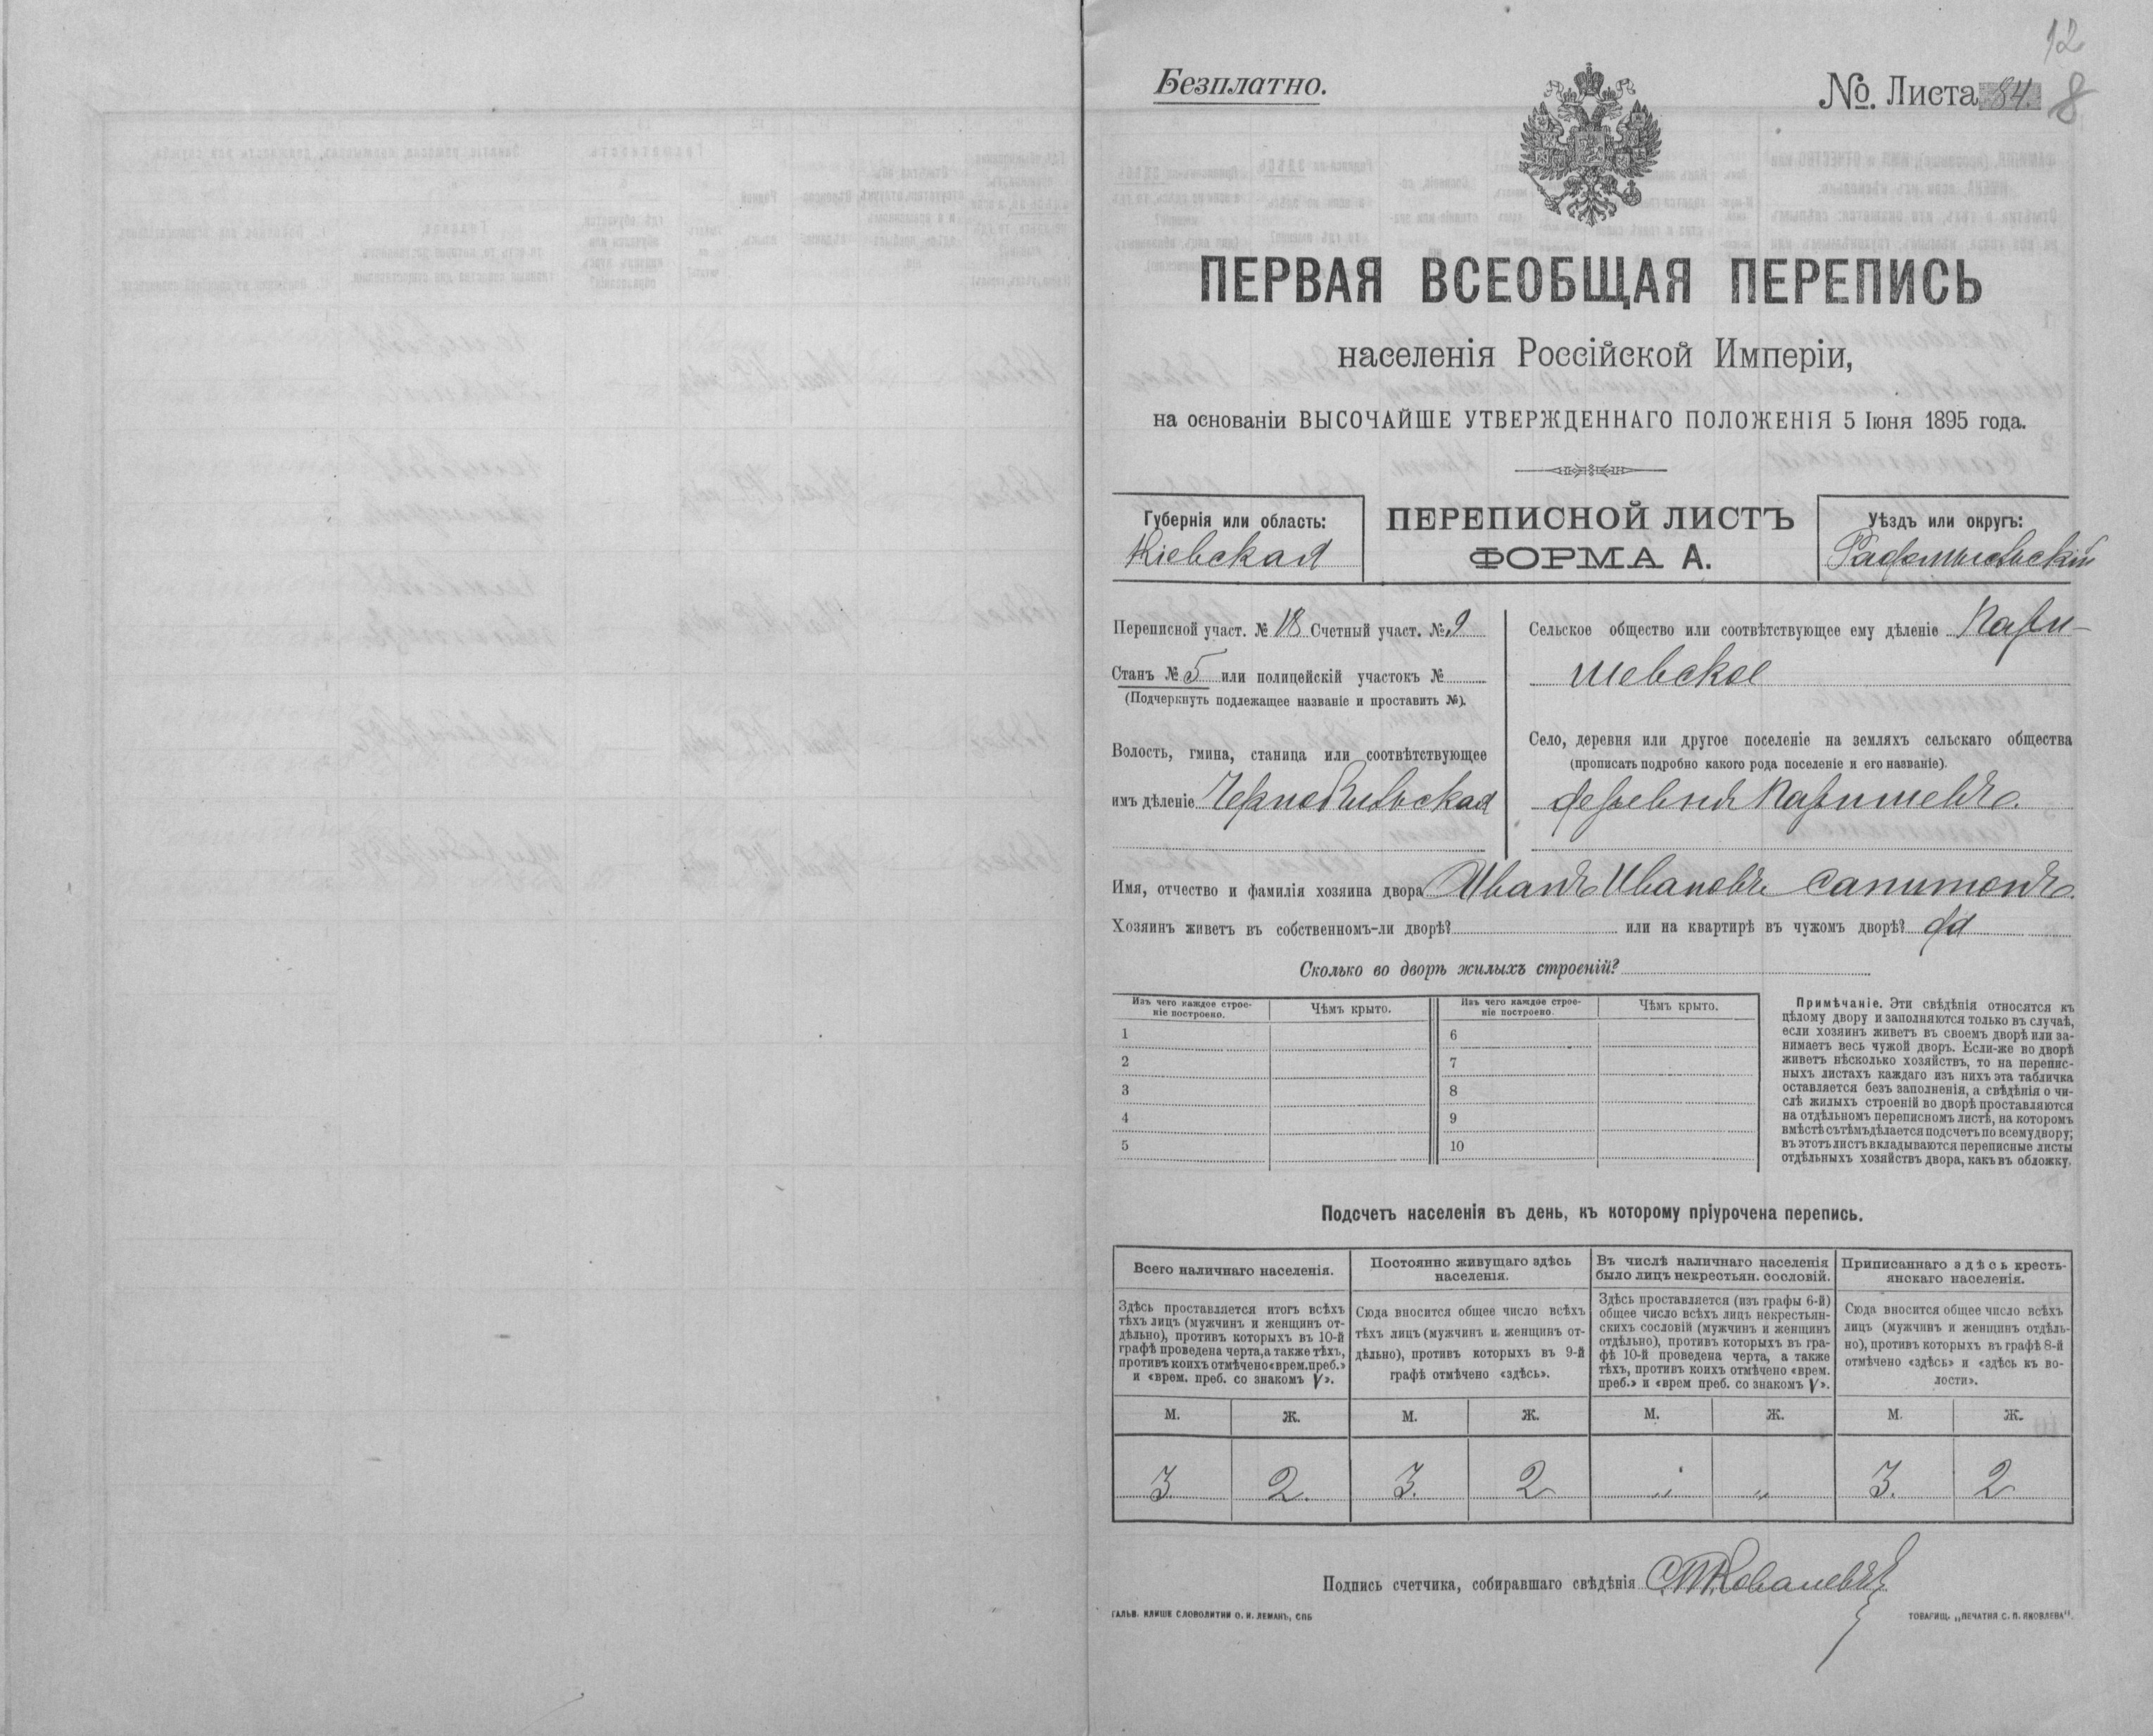 12
Безплатно.
№. Листа 84. 8
ПЕРВАЯ ВСЕОБЩАЯ ПЕРЕПИСЬ
населенія Россійской Имперіи,
на основаніи ВЫСОЧАЙШЕ УТВЕРЖДЕННАГО ПОЛОЖЕНІЯ 5 Іюня 1895 года.
Губернія или область:
Кіевская
ПЕРЕПИСНОЙ ЛИСТЪ
ФОРМА А.
Уѣздъ или округъ:
Радомысльскій
Переписной участ. № 18 Счетный участ. № 9
Станъ № 5 или полицейскій участокъ №
(Подчеркнуть подлежащее названіе и проставить №).
Волость, гмина, станица или соотвѣтствующее
имъ дѣленіе Чернобыльская
Сельское общество или соотвѣтствующее ему дѣленіе Пари-
шевское
Село, деревня или другое поселеніе на земляхъ сельскаго общества
(прописать подробно какого рода поселеніе и его названіе).
деревня Паришевъ
Имя, отчество и фамилія хозяина двора Иванъ Ивановъ Сапитонъ
Хозяинъ живетъ въ собственномъ-ли дворѣ? или на квартирѣ въ чужомъ дворѣ? да
Сколько во дворѣ жилыхъ строеній?
Изъ чего каждое строе-
ніе построено.
Чѣмъ крыто.
Изъ чего каждое строе-
ніе построено.
Чѣмъ крыто.
1
2
3
4
5
6
7
8
9
10
Примѣчаніе. Эти свѣдѣнія относятся къ
цѣлому двору и заполняются только въ случаѣ,
если хозяинъ живетъ въ своемъ дворѣ или за-
нимаетъ весь чужой дворъ. Если-же во дворѣ
живетъ нѣсколько хозяйствъ, то на перепис-
ныхъ листахъ каждаго изъ нихъ эта табличка
оставляется безъ заполненія, а свѣдѣнія о чи-
слѣ жилыхъ строеній во дворѣ проставляются
на отдѣльномъ переписномъ листѣ, на которомъ
вмѣстѣ съ тѣмъ дѣлается подсчетъ по всему двору;
въ этотъ листъ вкладываются переписные листы
отдѣльныхъ хозяйствъ двора, какъ въ обложку.
Подсчетъ населенія въ день, къ которому пріурочена перепись.
Всего наличнаго населенія.
Постоянно живущаго здѣсь
населенія.
Въ числѣ наличнаго населенія
было лицъ некрестьян. сословій.
Приписаннаго здѣсь кресть-
янскаго населенія.
Здѣсь проставляется итогъ всѣхъ
тѣхъ лицъ (мужчинъ и женщинъ от-
дѣльно), противъ которыхъ въ 10-й
графѣ проведена черта, а также тѣхъ,
противъ коихъ отмѣчено «врем. преб.»
и «врем. преб. со знакомъ V».
Сюда вносится общее число всѣхъ
тѣхъ лицъ (мужчинъ и женщинъ от-
дѣльно), противъ которыхъ въ 9-й
графѣ отмѣчено «здѣсь».
Здѣсь проставляется (изъ графы 6-й)
общее число всѣхъ лицъ некрестьян-
скихъ сословій (мужчинъ и женщинъ
отдѣльно), противъ которыхъ въ гра-
фѣ 10-й проведена черта, а также
тѣхъ, противъ коихъ отмѣчено «врем.
преб.» и «врем преб. со знакомъ V».
Сюда вносится общее число всѣхъ
лицъ (мужчинъ и женщинъ отдѣль-
но), противъ которыхъ въ графѣ 8-й
отмѣчено «здѣсь» и «здѣсь къ во-
лости».
М. Ж. М. Ж. М. Ж. М. Ж.
3 2. 3. 2 „ „ 3. 2
Подпись счетчика, собиравшаго свѣдѣнія С.П.Ковалевъ
ГАЛЬВ. КЛИШЕ СЛОВОЛИТНИ О. И. ЛЕМАНЪ, СПБ
ТОВАРИЩ. „ПЕЧАТНЯ С. П. ЯКОВЛЕВА".